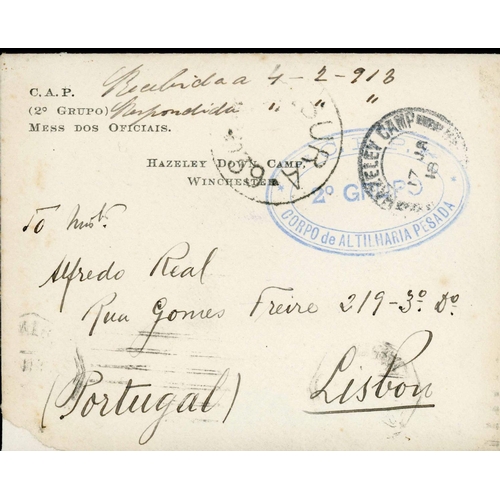 C. A. P. Recebida a 4-2-918
(2º GRUPO) Respondida " " "
MESS DOS OFICIAIS.
HAZELEY DOWN CAMP,
WINCHESTER
HAZELEY CAMP
17 JA 18
2º GRUPO
CORPO de ALTILHARIA PESADA
CENSURA
To Mist.
Alfredo Real
Rua Gomes Freire 219-3º Dº
(Portugal) Lisbon